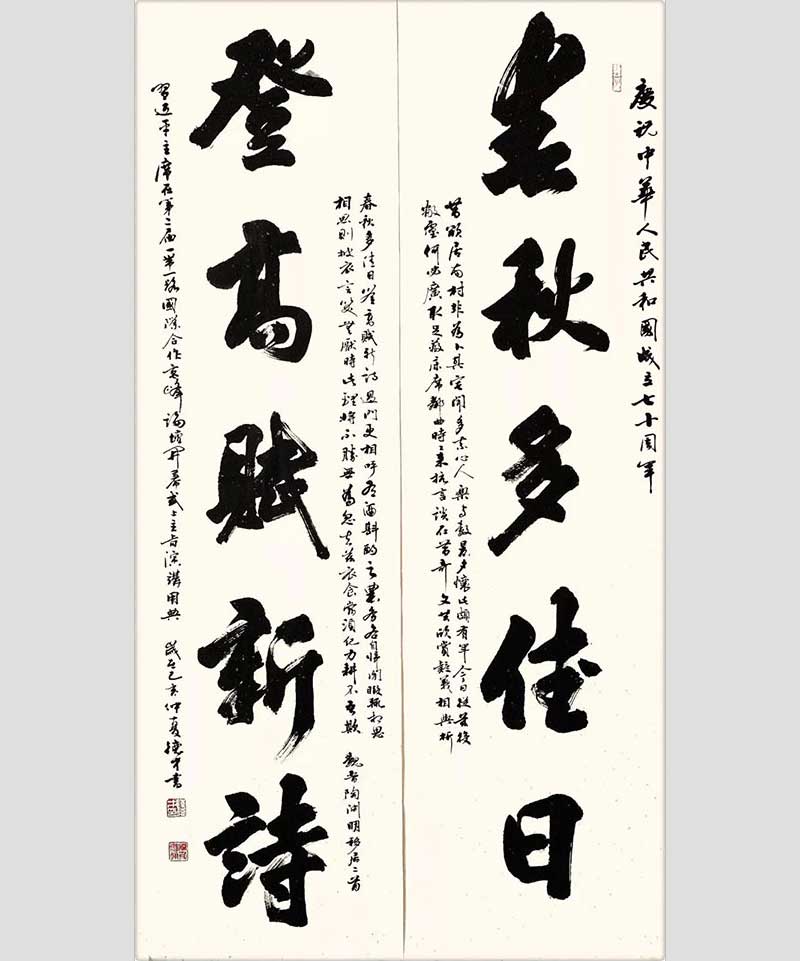 慶祝中華人民共和國成立七十周年
春秋多佳日
昔欲居南村非為卜其宅聞多素心人樂與數晨夕懷此頗有年今日從茲役
敝廬何必廣取足蔽床席鄰曲時時來抗言談在昔奇文共欣賞疑義相與析
春秋多佳日登高賦新詩過門更相呼有酒斟酌之農務各自歸閑暇輒相思
相思則披衣言笑無厭時此理將不勝無為忽去茲衣食當須紀力耕不吾欺 魏晉陶淵明移居二首
登高賦新詩
習近平主席在第二届一帶一路國際合作高峰論壇開幕式上主旨演講用典 歲在己亥仲夏 書